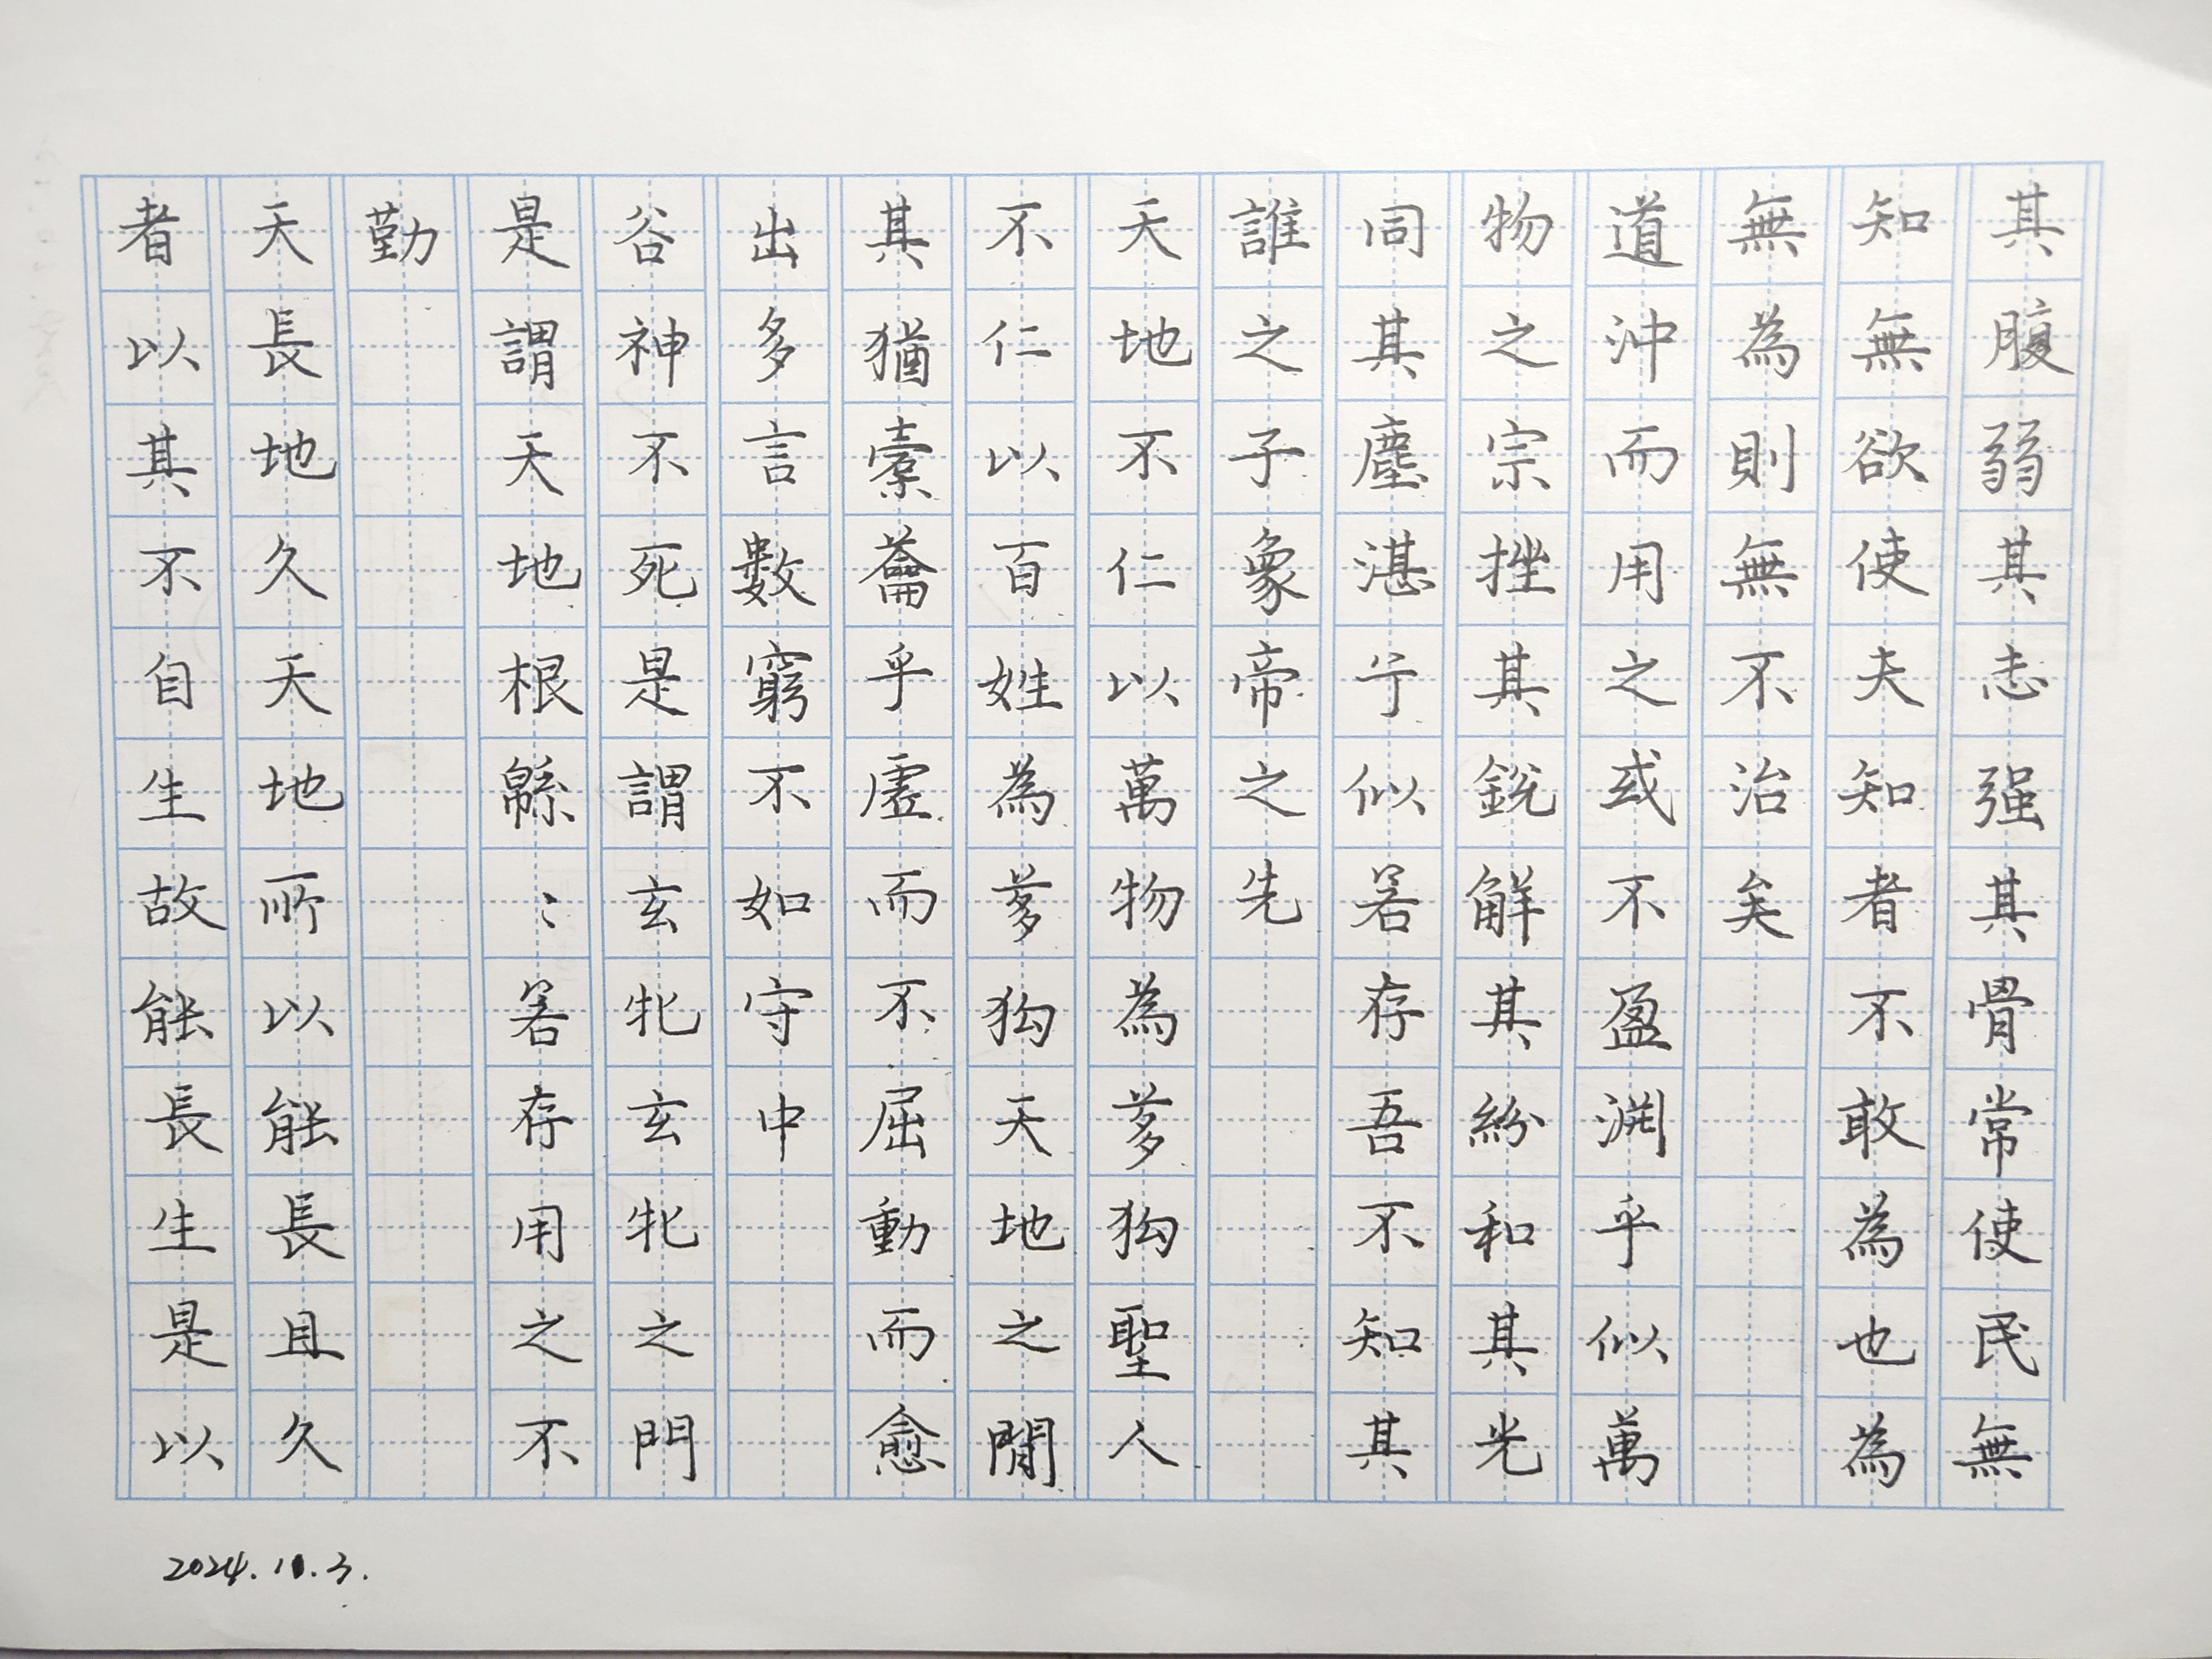 其腹弱其志强其骨常使民無
知無欲使夫知者不敢為也為
無為則無不治矣
道沖而用之或不盈渊乎似萬
物之宗挫其銳解其紛和其光
同其塵湛兮似若存吾不知其
誰之子象帝之先
天地不仁以萬物為芻狗聖人
不仁以百姓為芻狗天地之間
其猶橐籥乎虛而不屈動而愈
出多言數窮不如守中
谷神不死是謂玄牝玄牝之門
是謂天地根緜〻若存用之不
勤
天長地久天地所以能長且久
者以其不自生故能長生是以
2024.11.3.